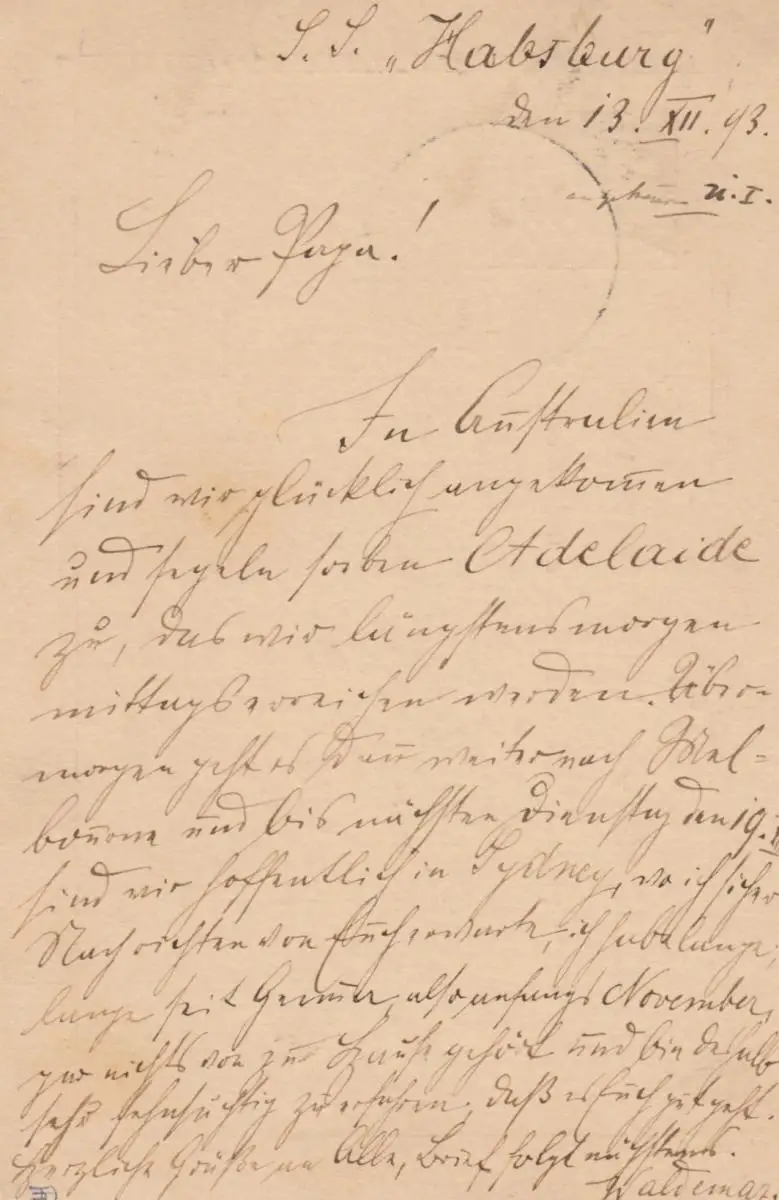 S. S. „Habsburg"
den 13. XII. 93.
angekommen 21. I.
Lieber Papa!
In Australien
sind wir glücklich angekom̅en
und segeln soeben Adelaide
zu, das wir längstens morgen
mittags erreichen werden. Über-
morgen geht es dan̅ weiter nach Mel-
bourne und bis nächsten Dienstag den 19. XII
sind wir hoffentlich in Sydney, wo ich sicher
Nachrichten von Euch erwarte, ich habe lange,
lange seit Genua, also anfangs November,
gar nichts von zu Hause gehört und bin deshalb
sehr sehnsüchtig zu erfahren, daß es Euch gut geht.
Herzliche Grüße an Alle, Brief folgt nächstens.
Waldemar.